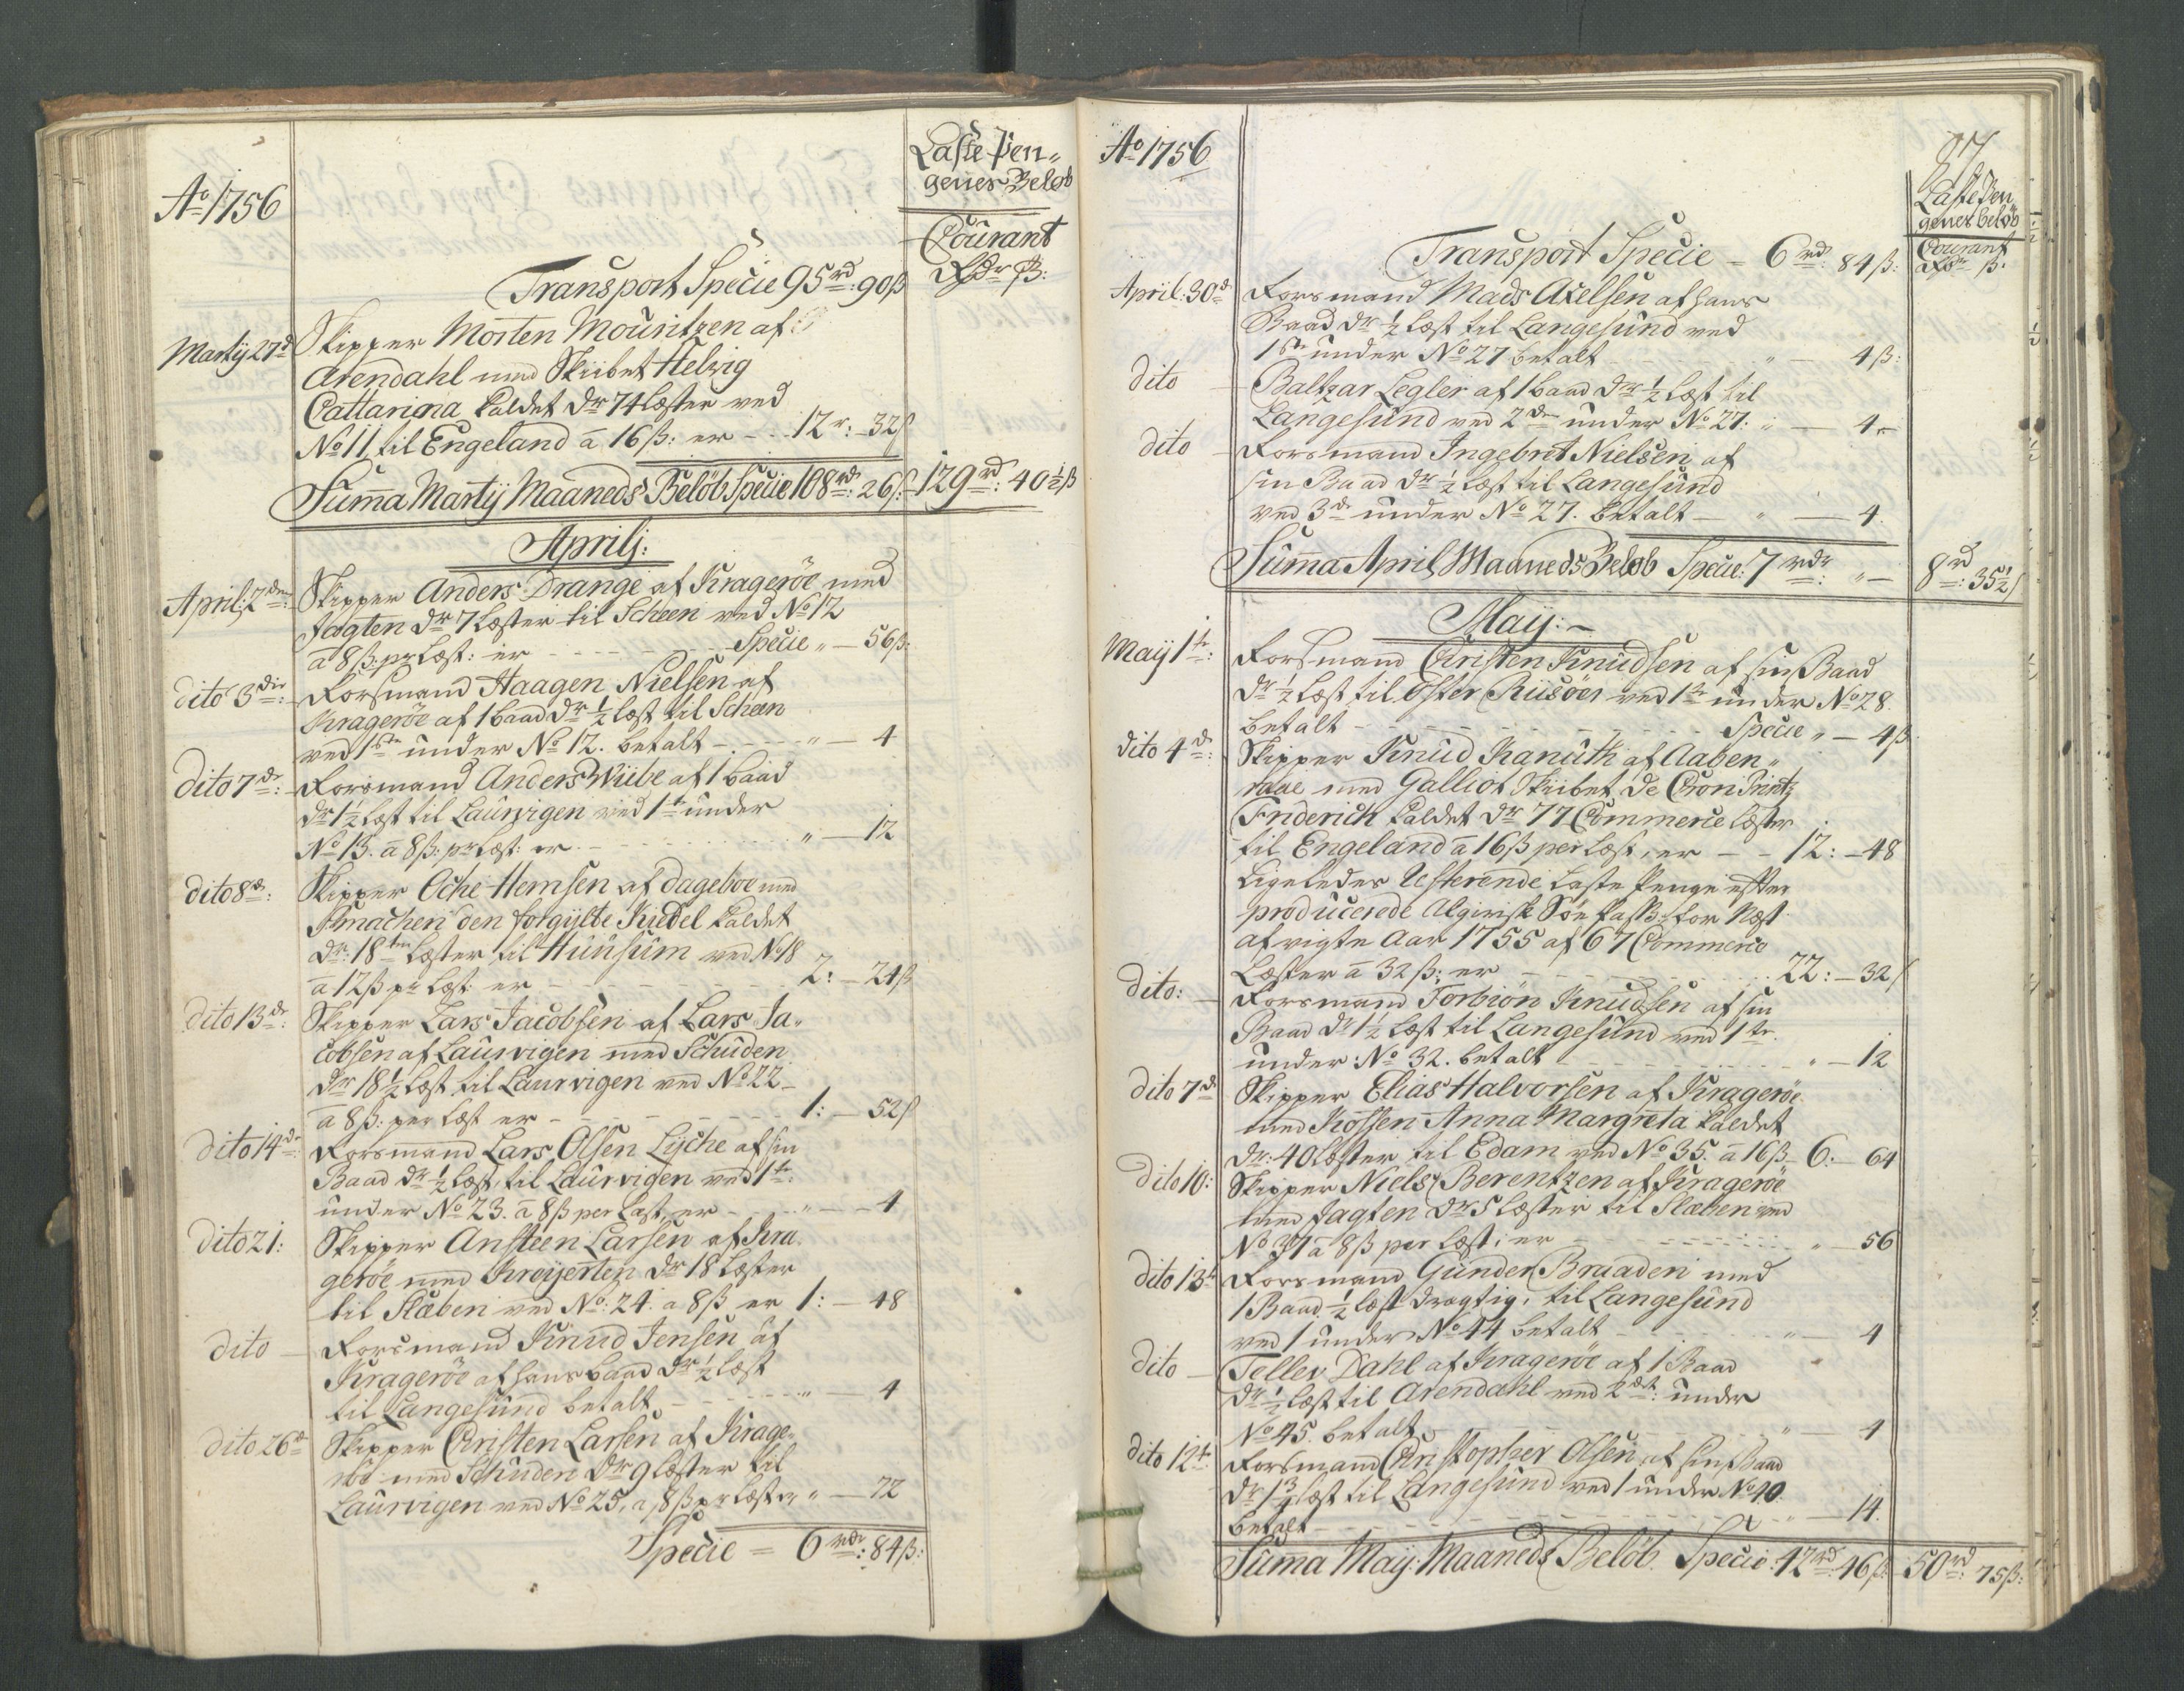 Ao 1756
Laste Pen-
genes Beløb
Courant
Rdr ß:
Transport Specie 95 rd: 90 ß
Martij 27d
Skipper Morten Mouritzen af
Arendahl med Skibet Helvig
Cattarina kaldet dr 74 læster ved
No 11 til Engeland à 16 ß: er - - - 12 r: 32 ß
Suma Martij Maaneds Beløb Specie 108 rd: 26 ß: 129 rd: 40½ ß
Aprilj:
April: 2den:
Skipper Anders Drange af Kragerøe med
Jagten dr 7 Læster til Scheen ved No 12
à 8 ß: pr Læst: er - - - Specie " — 56 ß:
dito 3die:
Forsmand Haagen Nielsen af
Kragerøe af 1 baad dr ½ læst til Scheen
ved 1ste under No 12. betalt - - - " — 4
Dito 7de:
Forsmand Anders Wiibe af 1 baad
dr 1½ læst til Laurvigen ved 1te under
No 13. à 8 ß: pr læst: er - - - " — 12
dito 8de:
Skipper Oche Hemsen af dageboe med
Smachen den forgylte Kudel kaldet
dr: 18ten Læster til Huusum ved No 18
à 12 ß pr Læst: er - - - 2: — 24 ß
Dito 13de:
Skipper Lars Jacobsen af Lars Ja-
cobsen af Laurvigen med Schuden
dr 18½ læst til Laurvigen ved No 22
à 8 ß: per Læst er - - - 1: — 52 ß
Dito 14de:
Forsmand Lars Olsen Lyche af sin
Baad dr ½ læst, til Laurvigen ved 1te:
under No 23. à 8 ß per Læst, er - - - " — 4
Dito 21:
Skipper Ansteen Larsen af Kra-
gerøe med Kreyerten dr 18 Læster
til Staben ved No: 24. à 8 ß er 1: — 48
dito —
Forsmand Knud Jensen af
Kragerøe af hans baad dr ½ læst
til Langesund betalt - - - " — 4
dito 26de
Skipper Christen Larsen af Krage-
röe med Schuden dr 9 læster til
Laurvigen ved No 25, à 8 ß pr læst er " — 72
Specie = 6 rdr: 84 ß:
Ao 1756
87
Laste Pen
genes beløb
Courant
Rdr ß:
Transport Specie - 6 rd: 84 ß:
April: 30d
Forsmand Mads Axelsen af hans
Baad dr ½ læst til Langesund ved
1ste under No 27 betalt - - - " — 4 ß:
dito —
Baltzar Legler af 1 baad dr ½ læst til
Langesund ved 2den under No 27: " — 4 "
dito —
Forsmand Ingebret Nielsen af
sin Baad dr ½ læst til Langesund
ved 3de under No 27. betalt — " — 4.
Suma April Maaneds Beløb Specie: 7 rdr: " — 8 rd: 35½ ß
Maij: —
Maij 1te:
Forsmand Christen Knudsen af sin Baad
dr ½ læst til Öster Riisöer ved 1te under No 28.
betalt - - - Specie " — 4 ß
dito 4de:
Skipper Knud Kanuth af Aaben-
raae med Galliot Skibet De Cron Printz
Friderich kaldet dr 77 Commerce læster
til Engeland à 16 ß per læst, er - - 12: — 48
Ligeledes Resterende Laste Penge efter
producerede Algirisk Søe Pass: for Næst
afvigte Aar 1755 af 67 Commerce
Læster à 32 ß: er - - - 22: — 32 ß
dito: —
Forsmand Torbiön Knudsen af sin
Baad dr 1½ læst til Langesund ved 1te.
under: No 32. betalt - - - " — 12
dito 7de
Skipper Elias Halvorsen af Kragerøe
med Hossen Anna Margreta kaldet
dr: 40 læster til Edam ved No 35. à 16 ß 6: — 64
dito 10:
Skipper Niels Berentzen af Kragerøe
med Jagten dr 5 læster til Staben ved
No 37 à 8 ß per læst, er - - - " — 56
dito 13te
Forsmand Gunder Braaden med
1 Baad ½ læst dragtig, til Langesund
ved 1 under No 44 betalt - - - " — 4
Dito —
Tellev Dahl af Kragerøe af 1 Baad
dr ½ læst til Arendahl ved 2det: under
No 45. betalt - - - " — 4
dito 12te
Forsmand Christopher Olsen af sin Baad
dr 1¾ læst til Langesund ved 1 under No 40.
betalt - - - " — 14.
Suma Maij Maaneds Beløb Specie: 42 rd: 46 ß: 50 rd: 75 ß: